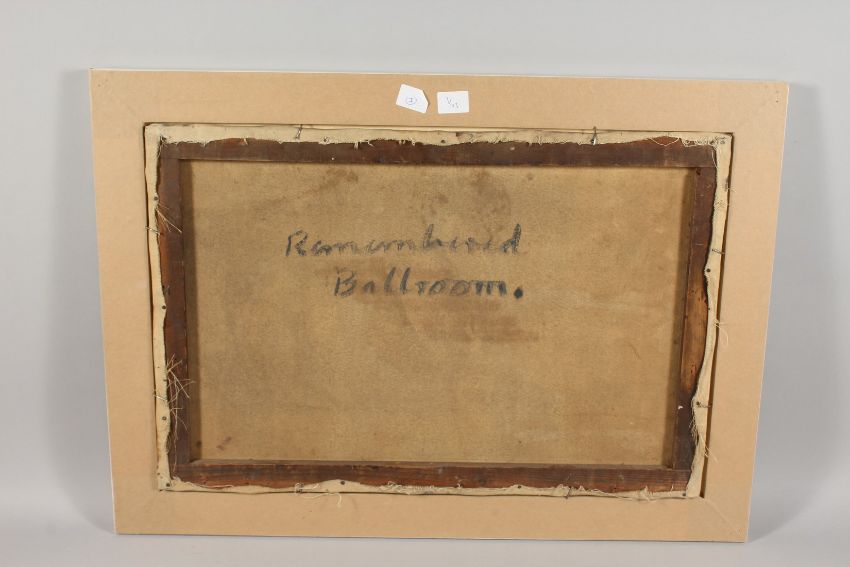 Remembered
Ballroom.